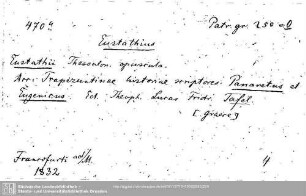 470a Patr. gr. 250
Eustathius
Eustathii Thessalon. opuscula.
Acc. Trapezuntinae historiae scriptores Panaretus et
Eugenicus. Ed. Theoph. Lucas Fridr. Tafel
[Graece]
Francofurti ad/M.
1832 4